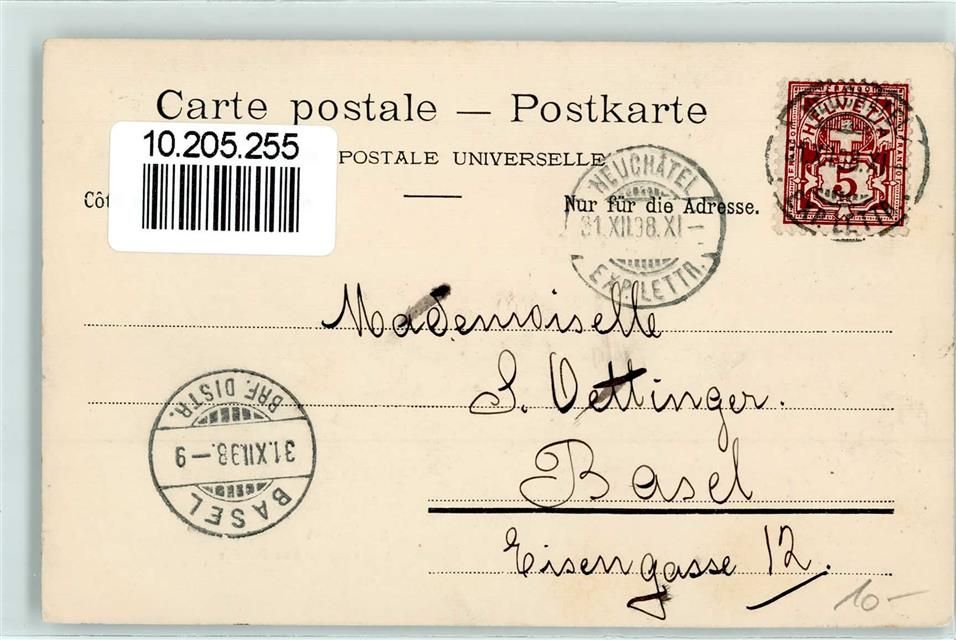 Carte postale — Postkarte
10.205.255
POSTALE UNIVERSELLE
Côt
Nur für die Adresse.
HELVETIA
FRANCO
5
NEUCHÂTEL
31.XII.98.XI—
EXP. LETTR.
Mademoiselle
S. Oettinger.
Basel
Eisengasse 12.
BASEL
31.XII.98.—9
BRF. DISTR.
10-